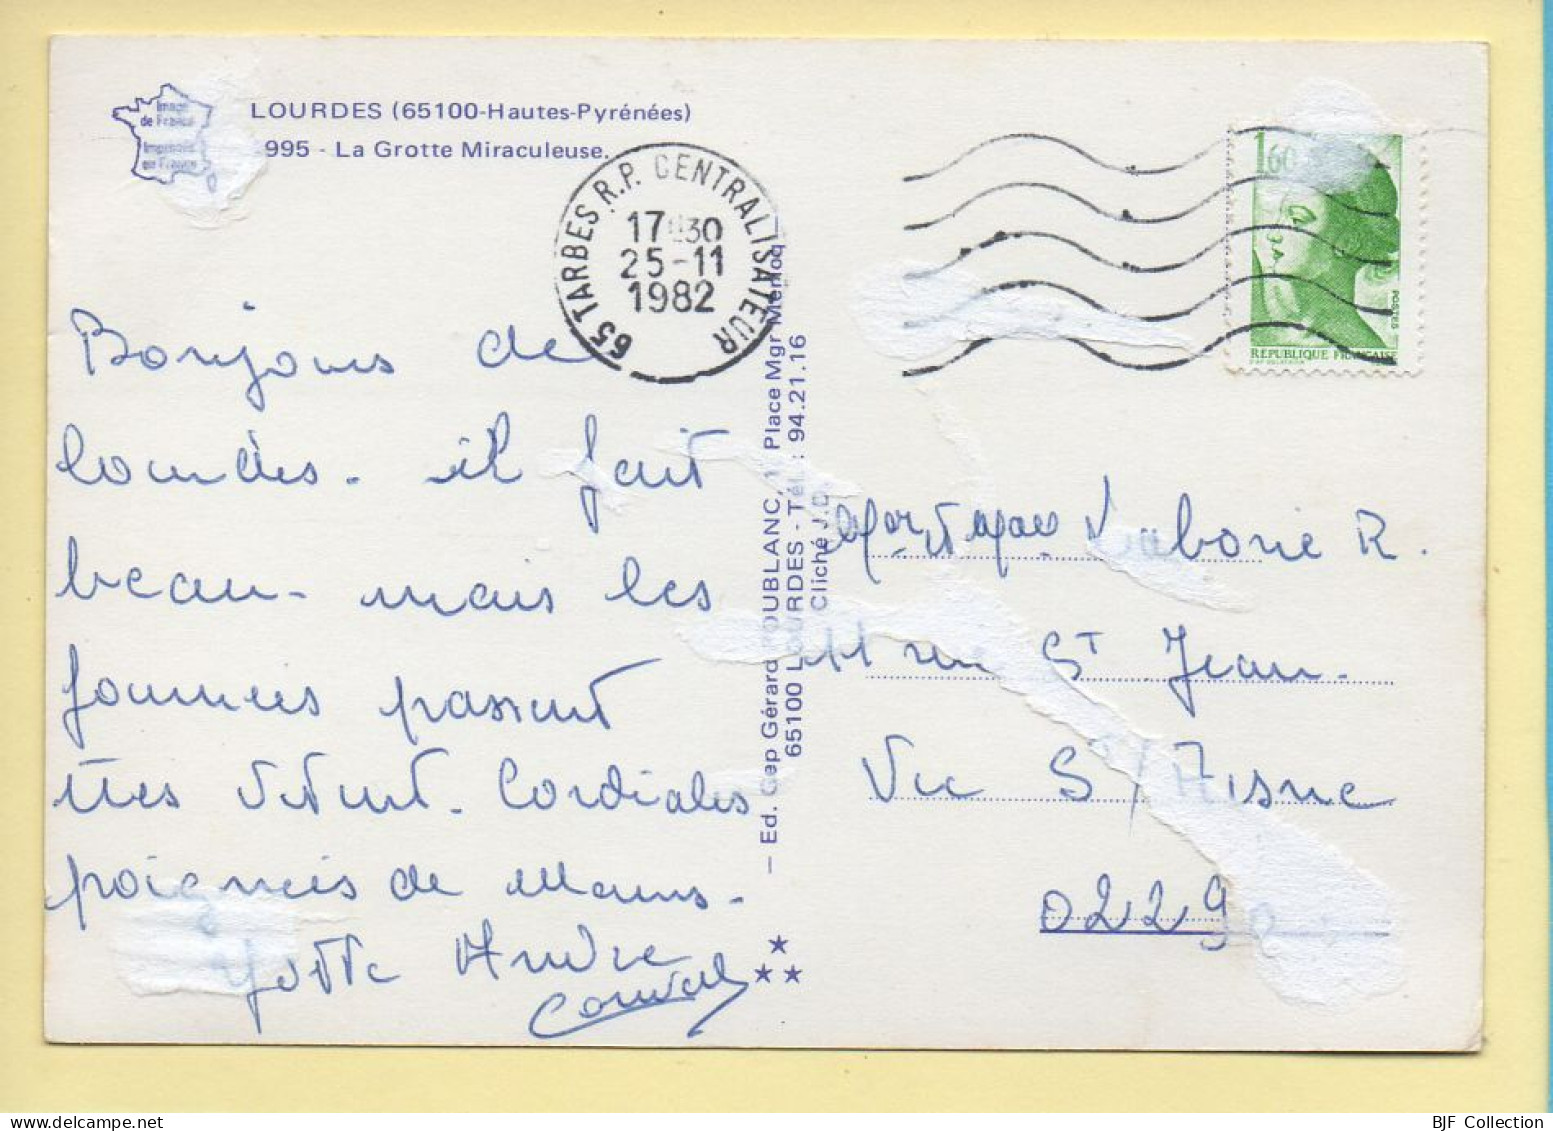 Image
de France
Imprimée
en France
LOURDES (65100-Hautes-Pyrénées)
995 - La Grotte Miraculeuse.
65 TARBES R.P. CENTRALISATEUR
17 30
25-11
1982
1,60
POSTES
REPUBLIQUE FRANÇAISE
Bonjour de
lourdes. il fait
beau. mais les
journées passent
très vitent. Cordiales
poignées de mains.
Yvette André
— Ed. Gep Gérard DOUBLANC, Place Mgr
65100 LOURDES - Tél. : 94.21.16
Cliché J.D.
Laborie R.
11 rue St Jean.
Vic S/Aisne
02290
BJF Collection